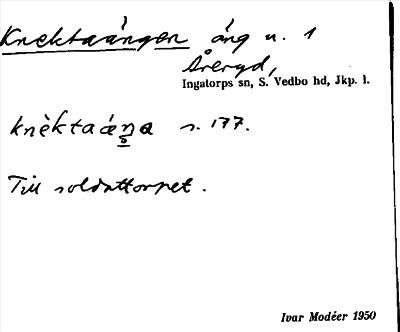 Knektaängen äng n. 1
Åreryd,
Ingatorps sn, S. Vedbo hd, Jkp. l.
knèktaáŋa s. 177.
Till soldattorpet.
Ivar Modéer 1950